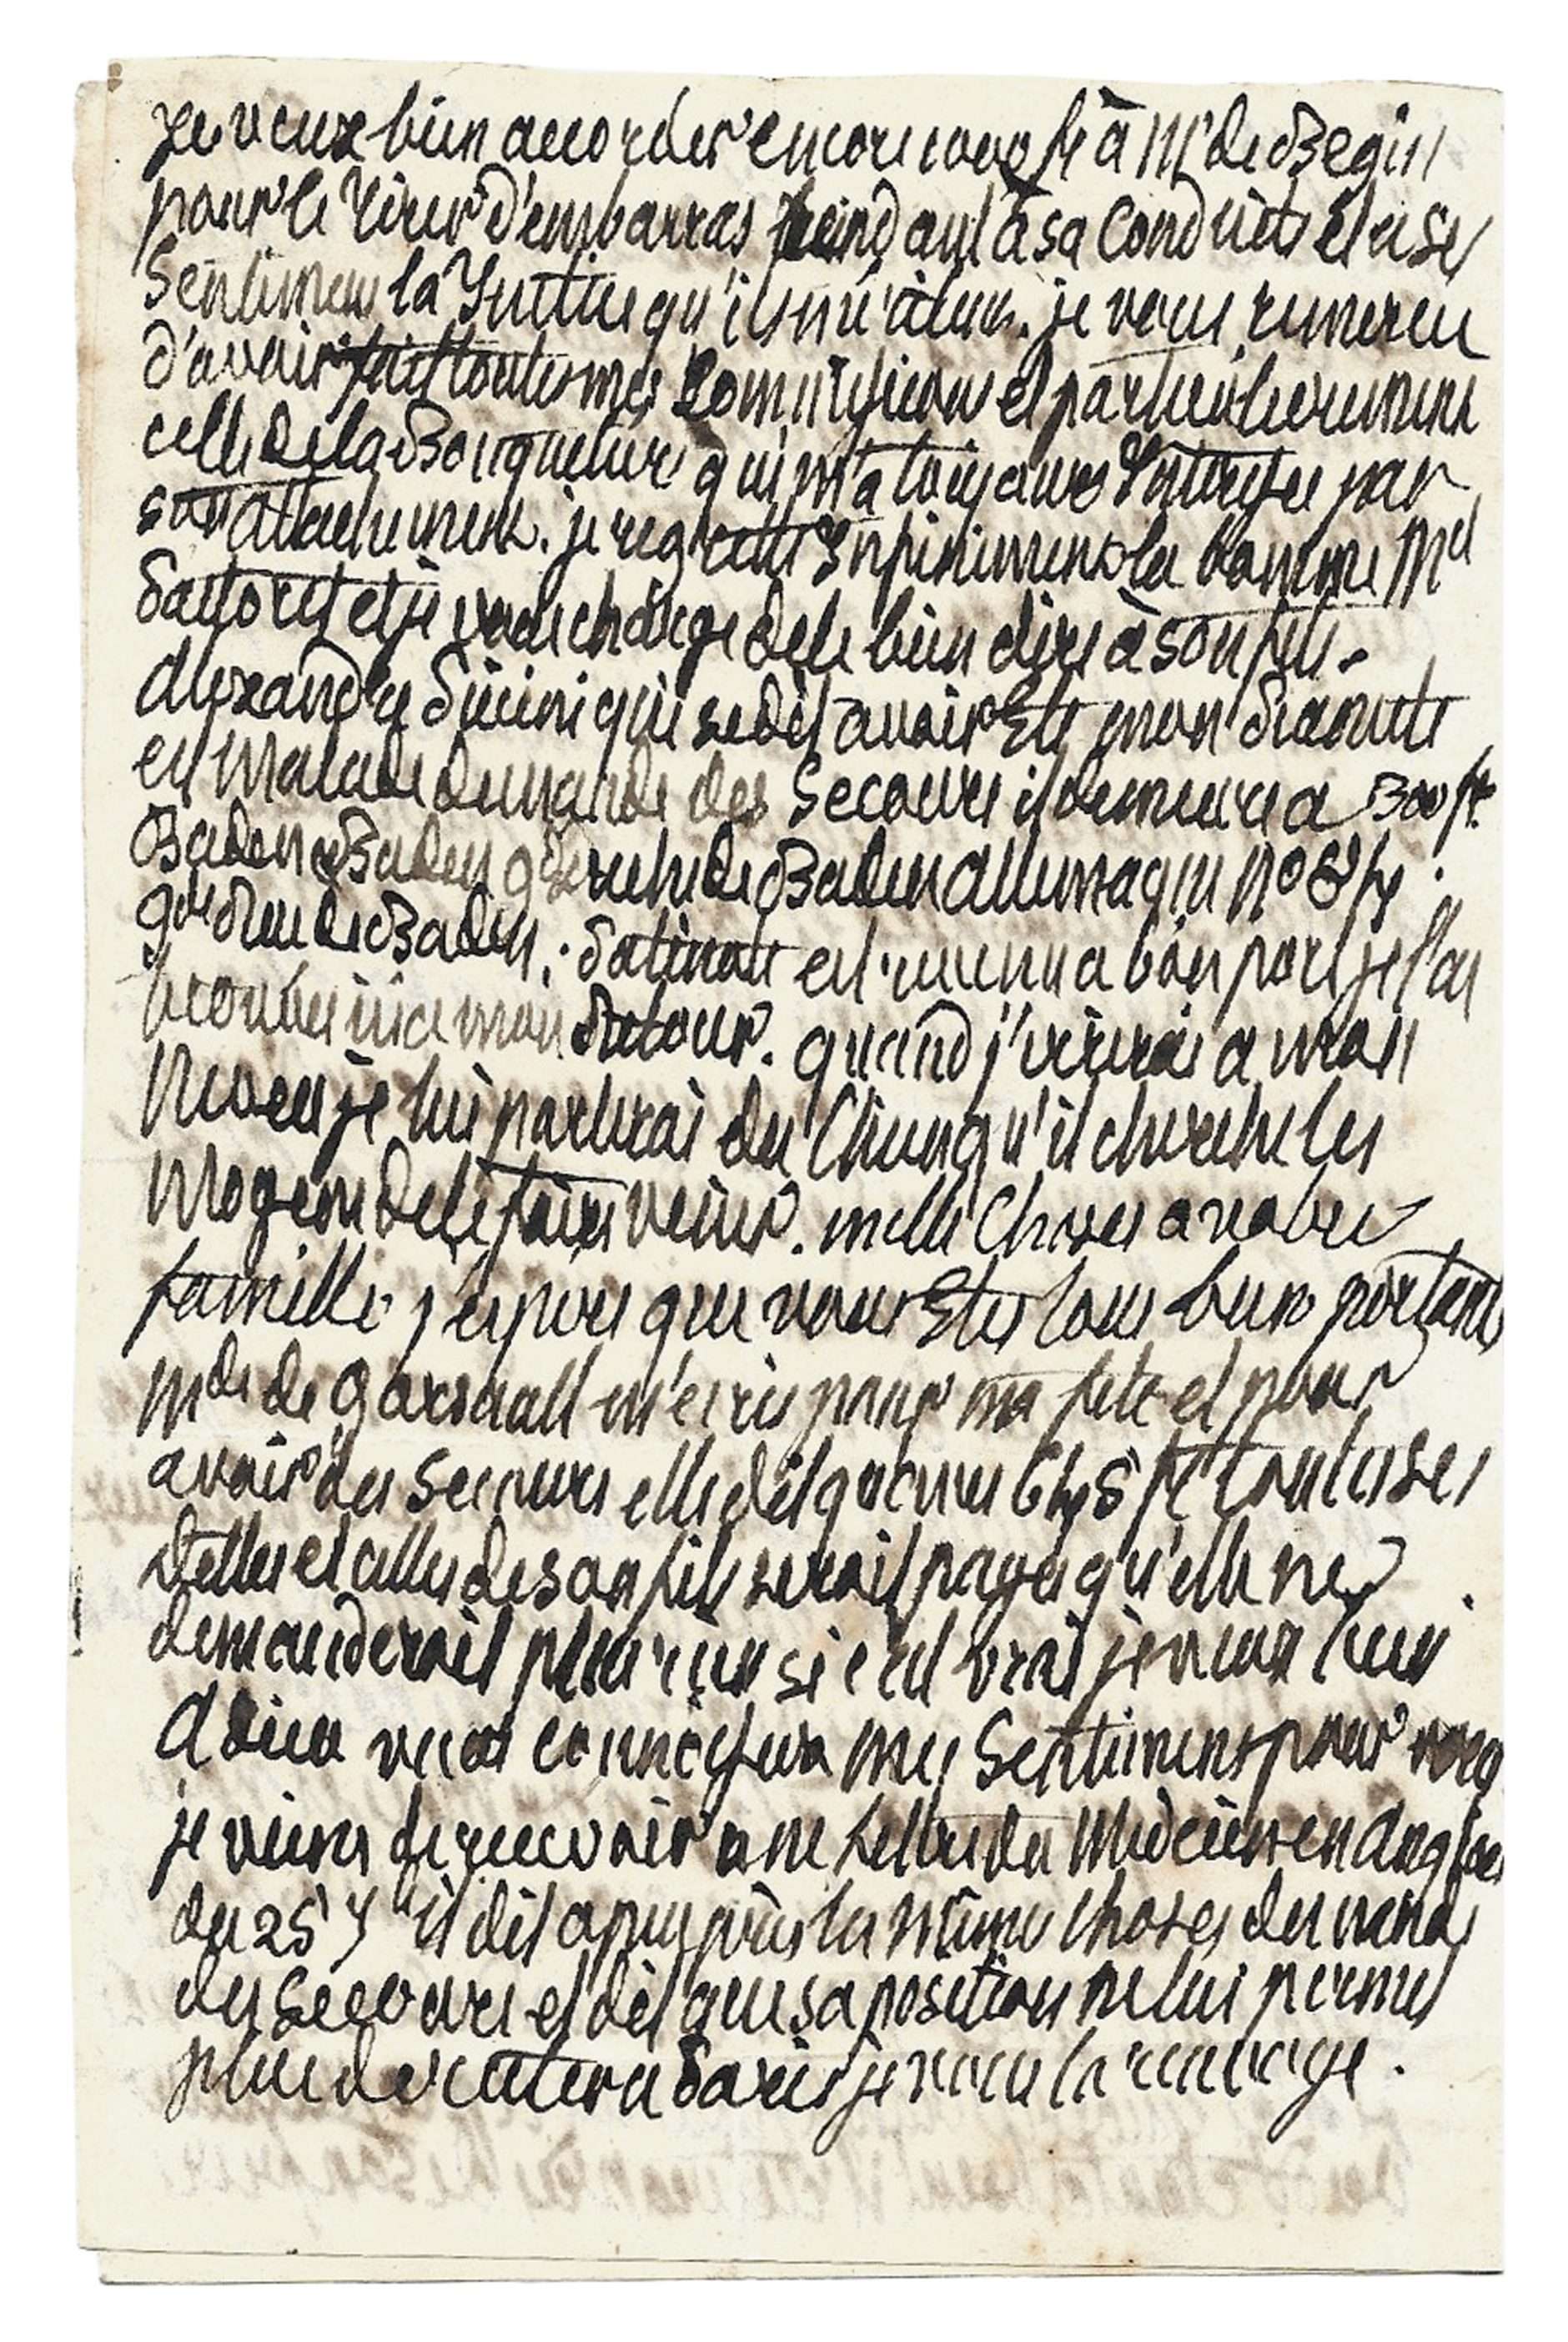 je veux bien accorder encore 1000 fr à Mr de Begin
pour le tirer d'embarras rendant à sa conduite et a ses
sentimens la Justice qu'ils méritent. je vous remercie
d'avoir fait toutes mes Commissions et particulierement
celle de la Bouquetiere qui m'a toujours Interessee par
son attachement. je regrette Infiniment le bonne Md
et je vous charge de le bien dire à son fils.
Alexandre qui se dit avoir Eté mon
est Malade demande des Secours il demeure a 300 fr.
Baden Baden gde ruehe de Baden Allemagne No
gde Rue de Baden. est revenu a bon port je l'ai
trouvée ici a mon Retour. quand j'ecrirai a mon
Neveu je lui parlerai du Chien qu'il cherche les
Moyens de le faire venir. mille Choses a votre
famille j'espere que vous Etes tous bien portans
Mde de m'ecrit pour ma fete et pour
avoir des Secours elle dit qu'avec fr toutes ses
dettes et celles de son fils serait payés qu'elle ne
demanderait plus rien si c'est vrai je veux bien
Adieu vous connaissez mes Sentimens pour vous
je viens de recevoir une Lettre du Médecin en
du 25 il dit a peu près la même choses demande
des Secours et dit que sa position ne lui permet
plus de rester a Paris je vous la renvoye.